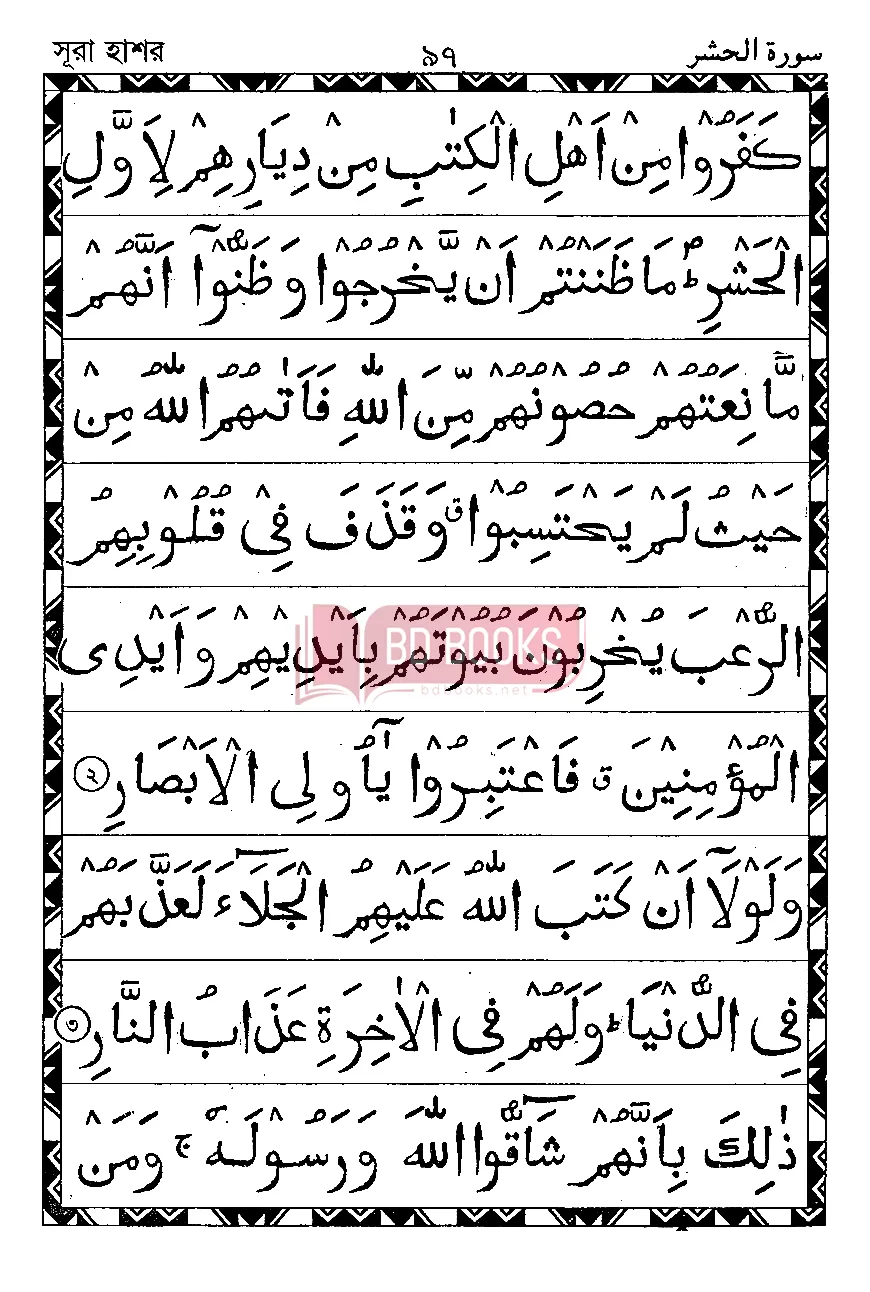 সূরা হাশর ৯৭ سورة الحشر
كَفَرُوْا مِنْ اَهْلِ الْكِتٰبِ مِنْ دِيَارِهِمْ لِاَوَّلِ
الْحَشْرِ ؕ مَا ظَنَنْتُمْ اَنْ يَّخْرُجُوْا وَظَنُّوْۤا اَنَّهُمْ
مَّا نِعَتُهُمْ حُصُوْنُهُمْ مِّنَ اللّٰهِ فَاَتٰىهُمُ اللّٰهُ مِنْ
حَيْثُ لَمْ يَحْتَسِبُوْا ق وَقَذَفَ فِىْ قُلُوْبِهِمُ
الرُّعْبَ يُخْرِبُوْنَ بُيُوْتَهُمْ بِاَيْدِيْهِمْ وَاَيْدِى
الْمُؤْمِنِيْنَ ق فَاعْتَبِرُوْا يٰۤاُولِى الْاَبْصَارِ ২
وَلَوْلَاۤ اَنْ كَتَبَ اللّٰهُ عَلَيْهِمُ الْجَلَآءَ لَعَذَّبَهُمْ
فِى الدُّنْيَا ؕ وَلَهُمْ فِى الْاٰخِرَةِ عَذَابُ النَّارِ ৩
ذٰلِكَ بِاَنَّهُمْ شَآقُّوا اللّٰهَ وَرَسُوْلَهٗ ج وَمَنْ
BD BOOKS
bdbooks.net